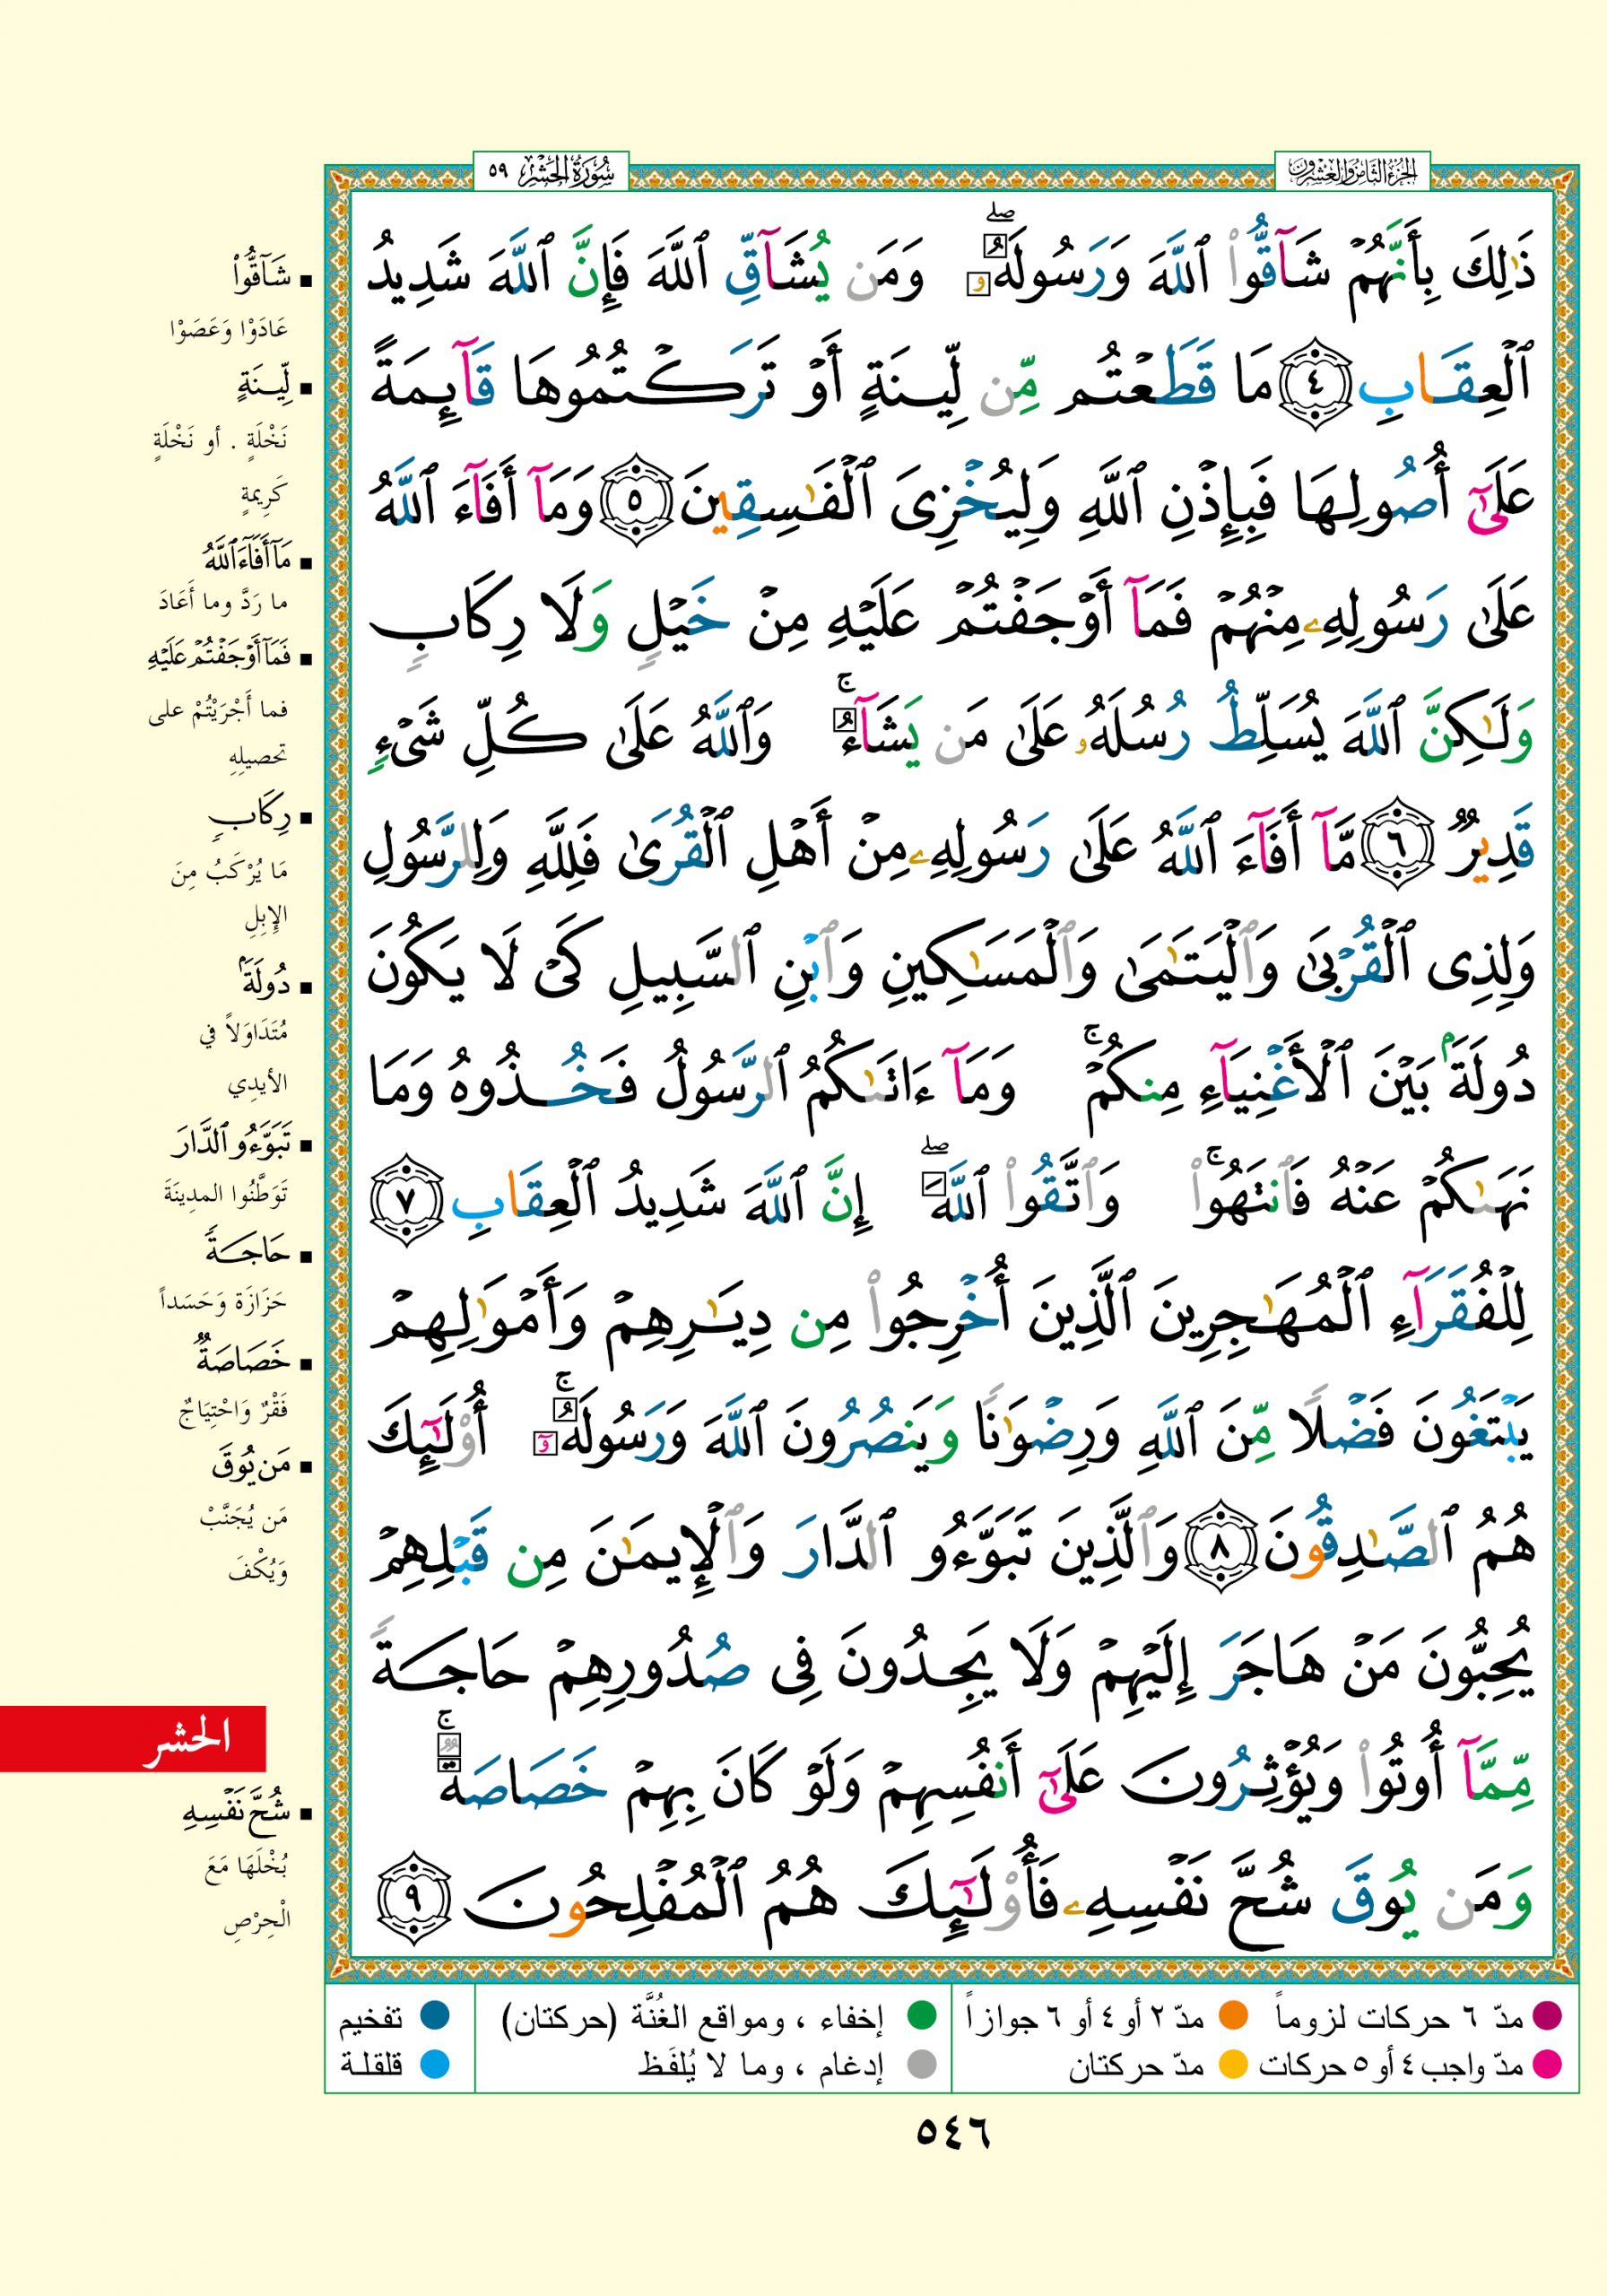 الجزء الثامن والعشرون
سورة الحشر ٥٩
ذَٰلِكَ بِأَنَّهُمْ شَآقُّوا۟ ٱللَّهَ وَرَسُولَهُۥ ۖ وَمَن يُشَآقِّ ٱللَّهَ فَإِنَّ ٱللَّهَ شَدِيدُ
ٱلْعِقَابِ ٤ مَا قَطَعْتُم مِّن لِّينَةٍ أَوْ تَرَكْتُمُوهَا قَآئِمَةً
عَلَىٰٓ أُصُولِهَا فَبِإِذْنِ ٱللَّهِ وَلِيُخْزِىَ ٱلْفَٰسِقِينَ ٥ وَمَآ أَفَآءَ ٱللَّهُ
عَلَىٰ رَسُولِهِۦ مِنْهُمْ فَمَآ أَوْجَفْتُمْ عَلَيْهِ مِنْ خَيْلٍ وَلَا رِكَابٍ
وَلَٰكِنَّ ٱللَّهَ يُسَلِّطُ رُسُلَهُۥ عَلَىٰ مَن يَشَآءُ ۚ وَٱللَّهُ عَلَىٰ كُلِّ شَىْءٍ
قَدِيرٌ ٦ مَّآ أَفَآءَ ٱللَّهُ عَلَىٰ رَسُولِهِۦ مِنْ أَهْلِ ٱلْقُرَىٰ فَلِلَّهِ وَلِلرَّسُولِ
وَلِذِى ٱلْقُرْبَىٰ وَٱلْيَتَٰمَىٰ وَٱلْمَسَٰكِينِ وَٱبْنِ ٱلسَّبِيلِ كَىْ لَا يَكُونَ
دُولَةًۢ بَيْنَ ٱلْأَغْنِيَآءِ مِنكُمْ ۚ وَمَآ ءَاتَىٰكُمُ ٱلرَّسُولُ فَخُذُوهُ وَمَا
نَهَىٰكُمْ عَنْهُ فَٱنتَهُوا۟ ۚ وَٱتَّقُوا۟ ٱللَّهَ ۖ إِنَّ ٱللَّهَ شَدِيدُ ٱلْعِقَابِ ٧
لِلْفُقَرَآءِ ٱلْمُهَٰجِرِينَ ٱلَّذِينَ أُخْرِجُوا۟ مِن دِيَٰرِهِمْ وَأَمْوَٰلِهِمْ
يَبْتَغُونَ فَضْلًا مِّنَ ٱللَّهِ وَرِضْوَٰنًا وَيَنصُرُونَ ٱللَّهَ وَرَسُولَهُۥٓ ۚ أُو۟لَٰٓئِكَ
هُمُ ٱلصَّٰدِقُونَ ٨ وَٱلَّذِينَ تَبَوَّءُو ٱلدَّارَ وَٱلْإِيمَٰنَ مِن قَبْلِهِمْ
يُحِبُّونَ مَنْ هَاجَرَ إِلَيْهِمْ وَلَا يَجِدُونَ فِى صُدُورِهِمْ حَاجَةً
مِّمَّآ أُوتُوا۟ وَيُؤْثِرُونَ عَلَىٰٓ أَنفُسِهِمْ وَلَوْ كَانَ بِهِمْ خَصَاصَةٌ ۚ
وَمَن يُوقَ شُحَّ نَفْسِهِۦ فَأُو۟لَٰٓئِكَ هُمُ ٱلْمُفْلِحُونَ ٩
شَآقُّوا۟
عَادَوْا وَعَصَوْا
لِّينَةٍ
نَخْلَةٍ . أو نَخْلَةٍ
كَرِيمةٍ
مَآ أَفَآءَ ٱللَّهُ
ما رَدَّ وما أَعَادَ
فَمَآ أَوْجَفْتُمْ عَلَيْهِ
فما أَجْرَيْتُمْ على
تحصيلِهِ
رِكَابٍ
مَا يُرْكَبُ مِنَ
الإِبِلِ
دُولَةًۢ
مُتَدَاوَلاً في
الأيدِي
تَبَوَّءُو ٱلدَّارَ
تَوَطَّنُوا المدِينَةَ
حَاجَةً
حَزَازَة وَحَسَداً
خَصَاصَةٌ
فَقْرٌ وَاحْتِيَاجٌ
مَن يُوقَ
مَن يُجَنَّبْ
وَيُكْفَ
الحشر
شُحَّ نَفْسِهِ
بُخْلَهَا مَعَ
الْحِرْصِ
مدّ ٦ حركات لزوماً مدّ ٢ أو ٤ أو ٦ جوازاً إخفاء ، ومواقع الغُنَّة (حركتان) تفخيم
مدّ واجب ٤ أو ٥ حركات مدّ حركتان إدغام ، وما لا يُلفَظ قلقلة
٥٤٦